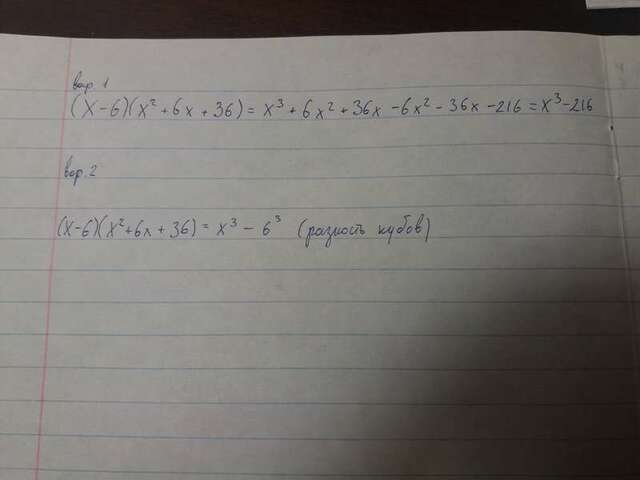 вар. 1
(x-6)(x²+6x+36) = x³+6x²+36x-6x²-36x-216=x³-216
вар. 2
(x-6)(x²+6x+36) = x³-6³ (разность кубов)